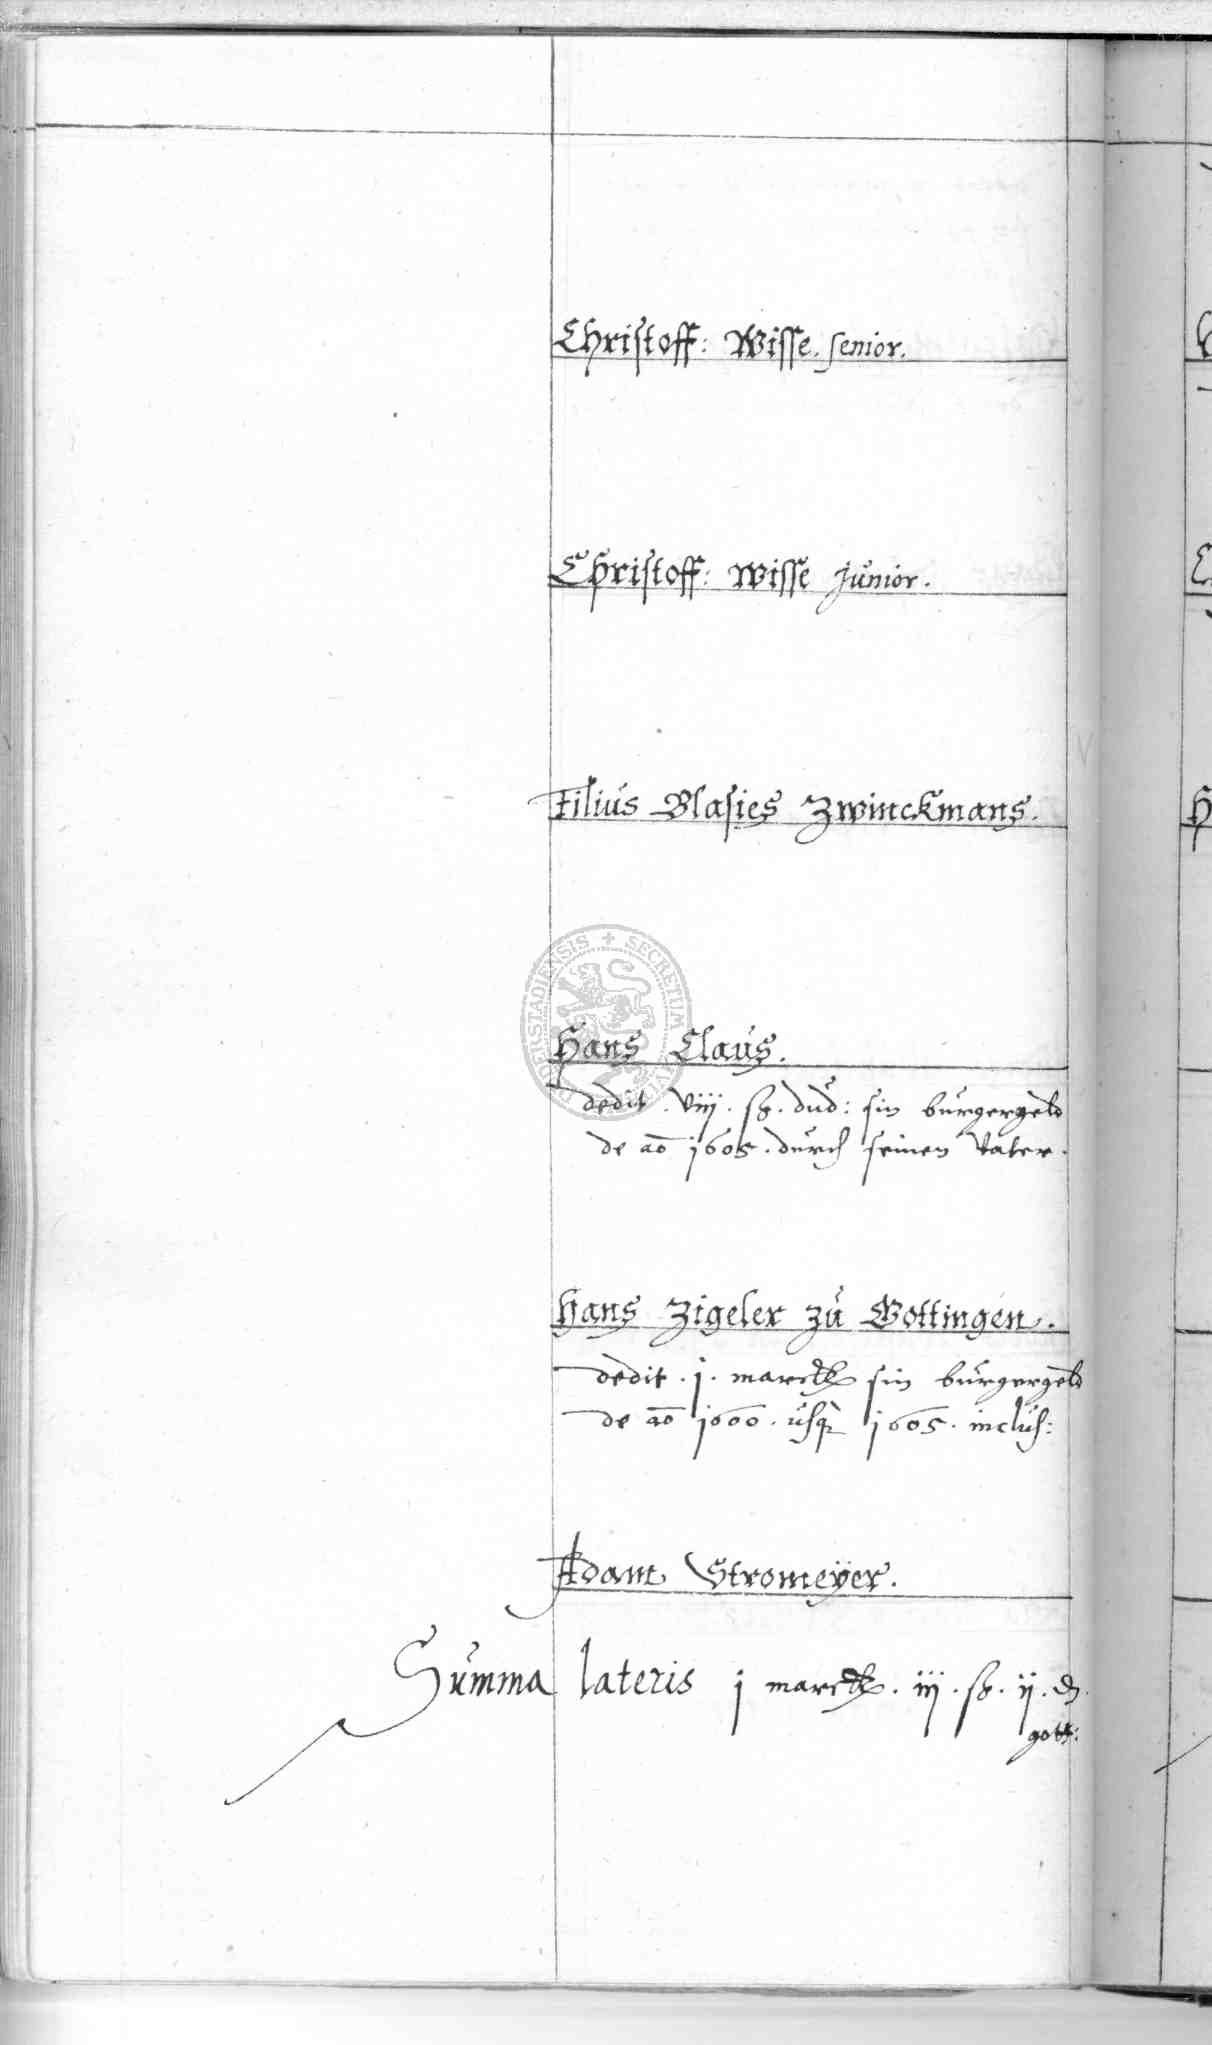 Christoff: Wisse. senior.
Christoff: Wisse junior.
Filius Blasies Zwinckmans.
Hans Claus.
dedit . viij . ß . dud: sin burgergeld
de ao 1605 . durch seinen Vater.
Hans Zigeler zu Gottingen.
dedit . j . marck sin burgergeld
de ao 1600 . usq 1605 . inclus:
Adam Stromeyer.
Summa lateris j marck . iij . ß . ij . d
gott:
SECRETUM